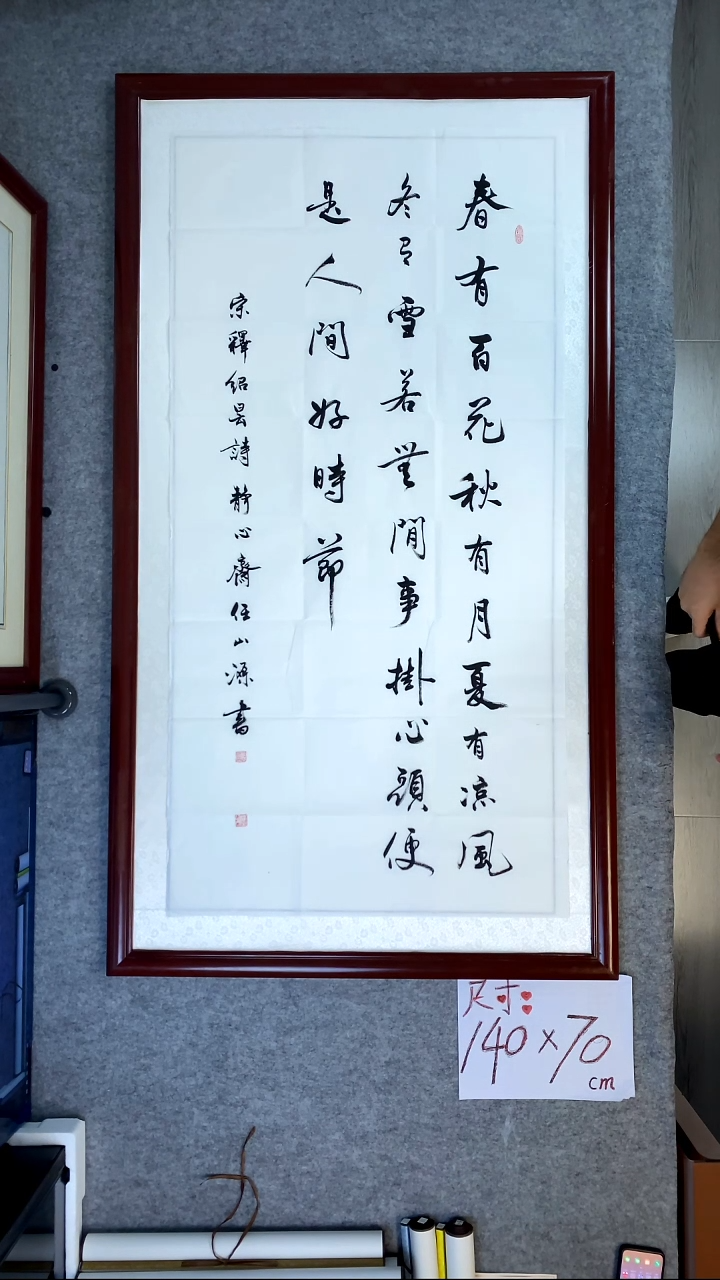 春有百花秋有月夏有凉風
冬有雪若無閒事掛心頭便
是人間好時節
宗釋紹昙詩 静心齋任山源書
尺寸:
140×70
cm